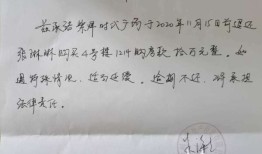 兹承诺紫牌时代广场于2020年11月15日前退还
张琳娜购买4号楼1214购房款拾万元整。如
遇特殊情况,适当延缓。逾期不还,将承担
法律责任。